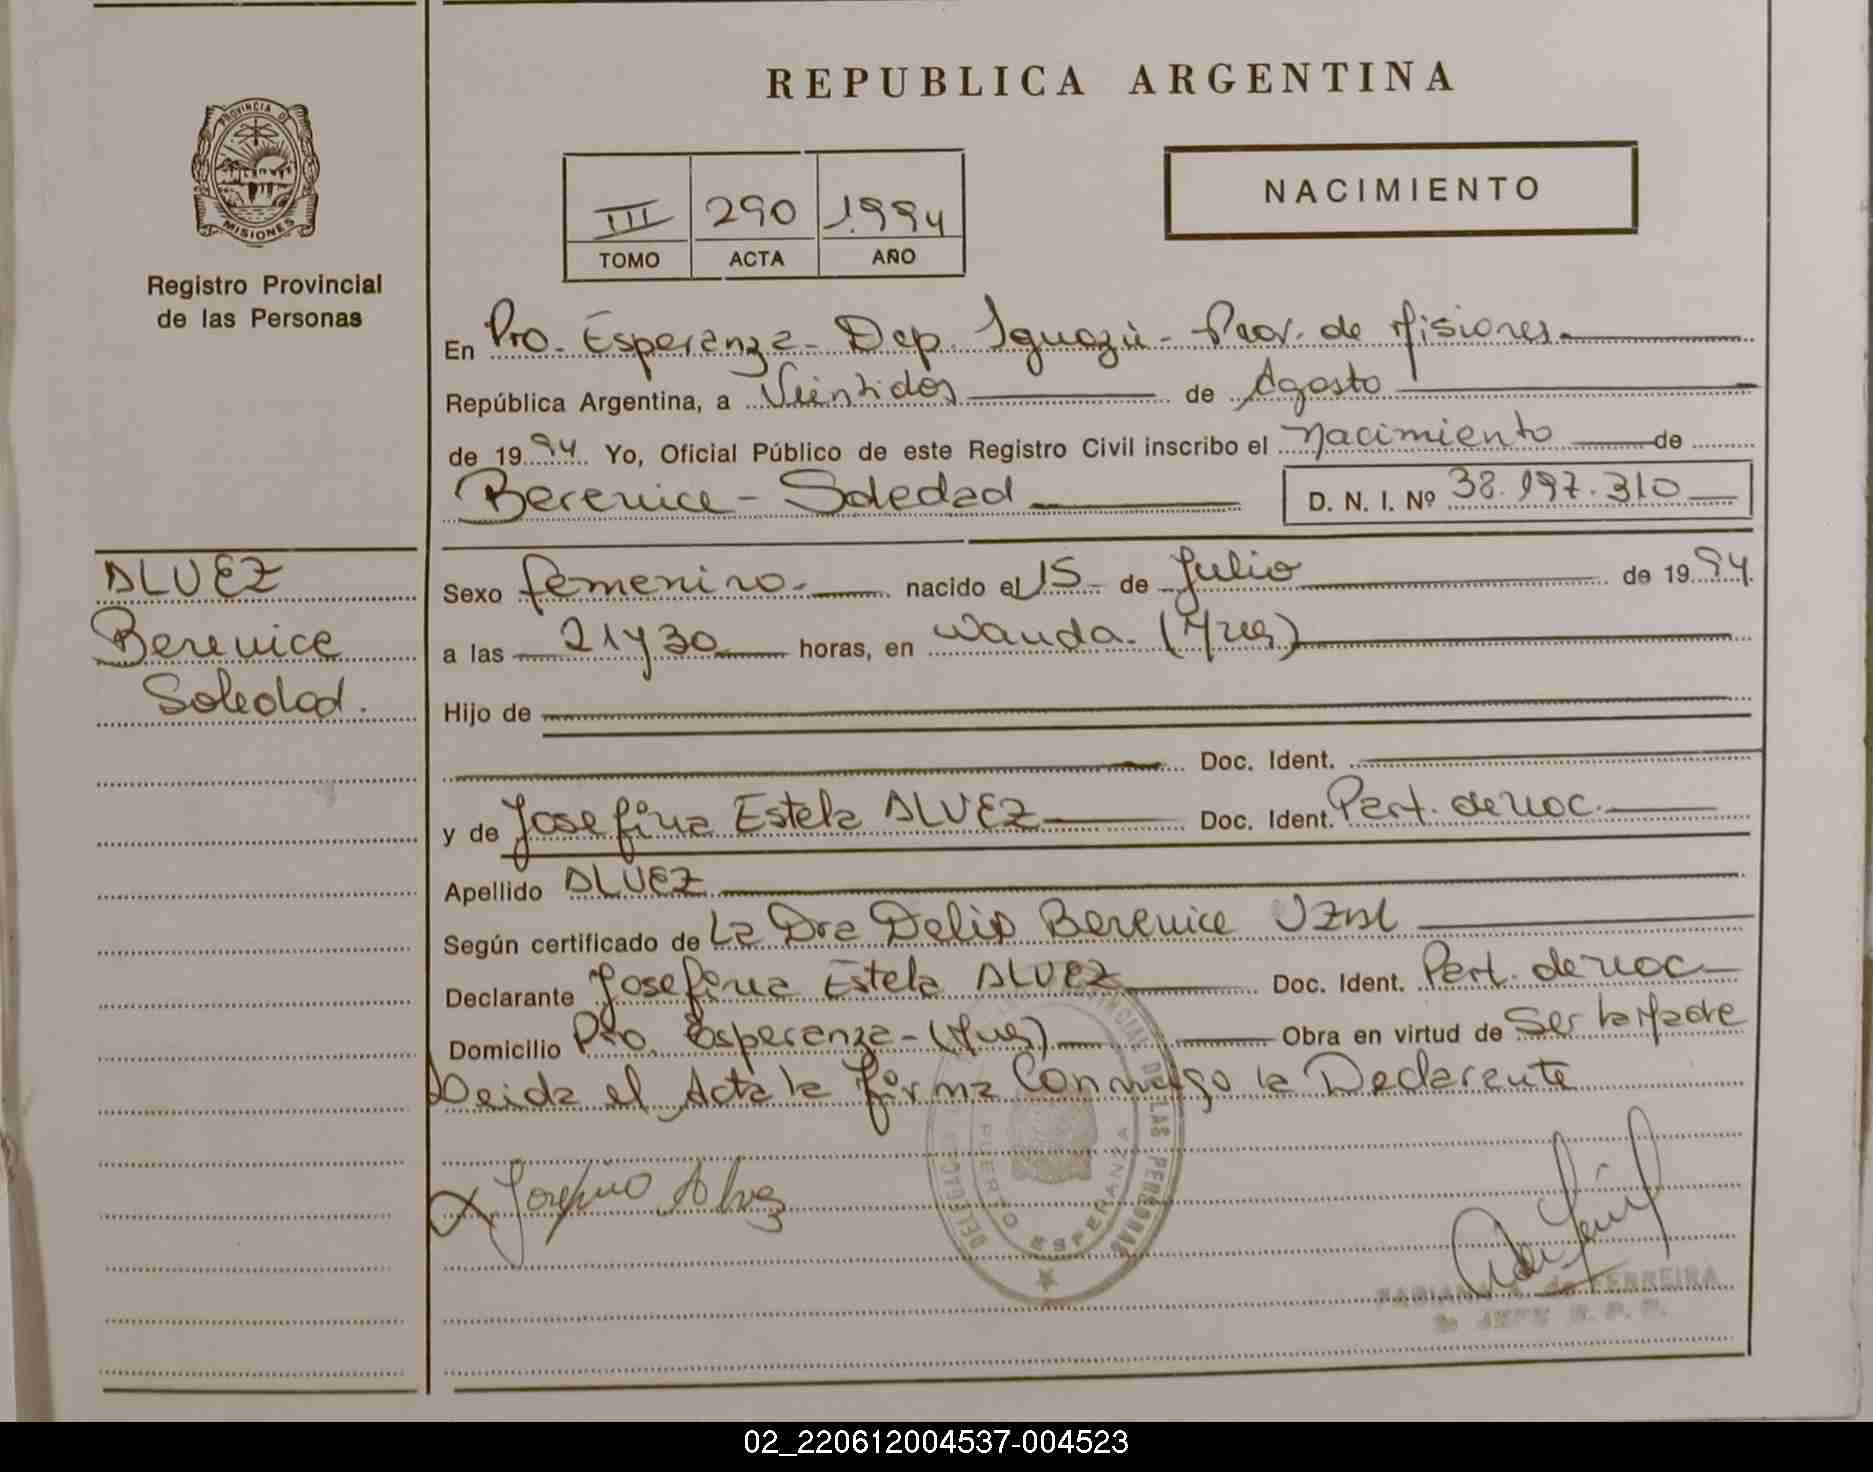 REPUBLICA ARGENTINA
PROVINCIA DE
MISIONES
Registro Provincial
de las Personas
III 290 1.994
TOMO ACTA AÑO
NACIMIENTO
En Pto. Esperanza - Dep. Iguazú - Prov. de Misiones
República Argentina, a Veintidos de Agosto
de 1994 Yo, Oficial Público de este Registro Civil inscribo el Nacimiento de
Berenice - Soledad D. N. I. Nº 38.197.310
ALVEZ
Berenice
Soledad.
Sexo femenino nacido el 15 de Julio de 1994
a las 21 y 30 horas, en Wanda. (Mnes)
Hijo de
Doc. Ident.
y de Josefina Estela ALVEZ Doc. Ident. Part. de noc.
Apellido ALVEZ
Según certificado de La Dra Delia Berenice
Declarante Josefina Estela ALVEZ Doc. Ident. Part. de noc
Domicilio Pto. Esperanza - (Mnes) Obra en virtud de Ser la Madre
Leida el Acta la firma Conmigo la Declarante
Josefina Alvez
DELEGACION PROVINCIAL DE LAS PERSONAS
PUERTO ESPERANZA
de FERREIRA
JEFE R. P. P.
02_220612004537-004523